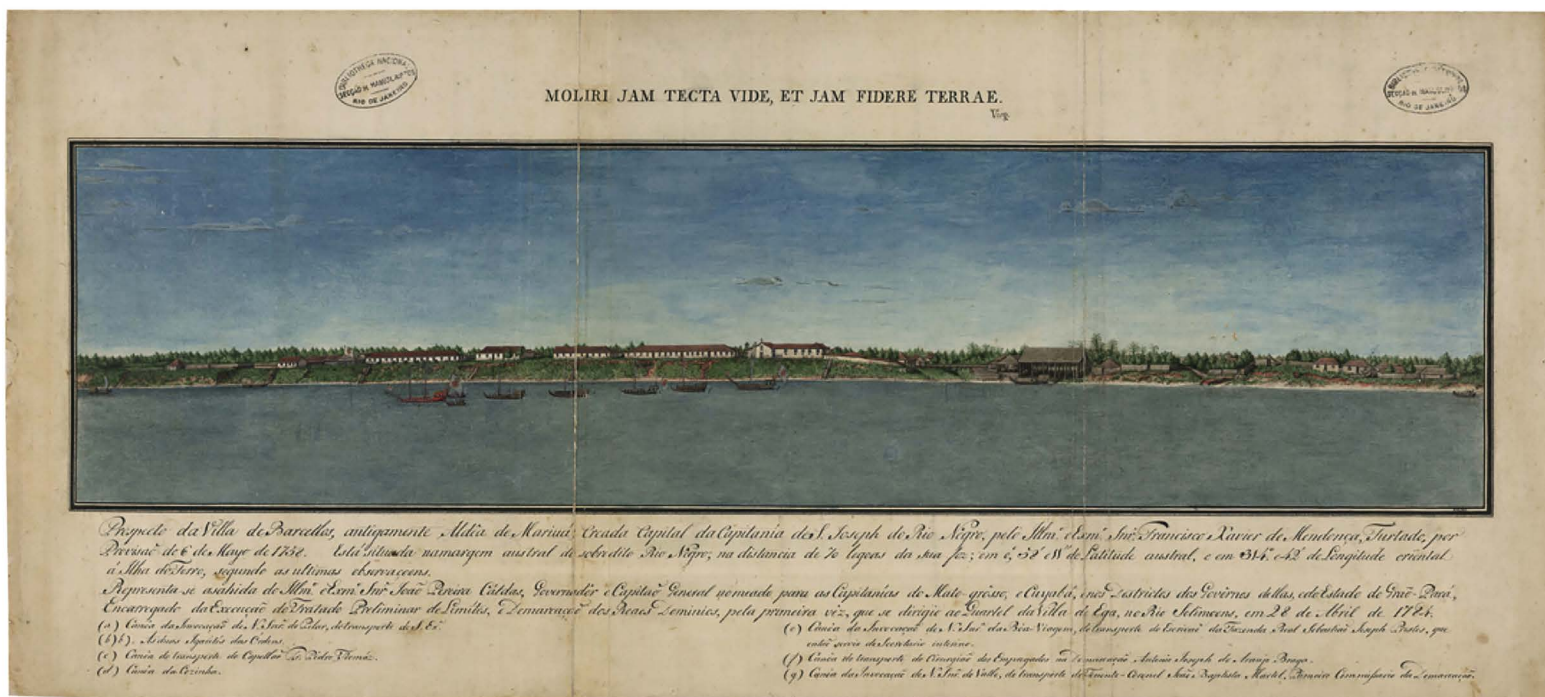 BIBLIOTHECA NACIONAL
SECÇÃO DE MANUSCRIPTOS
RIO DE JANEIRO
MOLIRI JAM TECTA VIDE, ET JAM FIDERE TERRAE.
Virg.
BIBLIOTHECA NACIONAL
SECÇÃO DE MANUSCRIPTOS
RIO DE JANEIRO
Prospecto da Villa de Barcellos, antigamente Aldêa de Mariuá; Creada Capital da Capitania de S. Joseph do Rio Negro, pelo Illmº. e Exmº. Snr. Francisco Xavier de Mendonça Furtado, por
Provisaõ de 6 de Mayo de 1758. Está situada na margem austral do sobredito Rio Negro; na distancia de 70 legoas da sua foz; em 0, 58' de Latitude austral, e em 314º e 42' de Longitude oriental
á Ilha do Ferro, segundo as ultimas observaçoens.
Representa se a sahida do Illmº. e Exmº. Snr. Joaõ Pereira Caldas, Governadôr e Capitaõ General nomeado para as Capitanias do Mato grôsso, e Cuyabá, e nos Destrictos dos Govêrnos dellas, e do Estado do Graõ-Pará,
Encarregado da Execuçaõ do Tratado Preliminar de Limites, e Demarcaçaõ dos Reaes Dominios, pela primeira vêz, que se dirigio ao Quartel da Villa de Ega, no Rio Solimoens, em 28 de Abril de 1784.
(a) Canôa da Invocaçaõ de N. Snrª. do Pilar, do transporte de S. Exª.
(b)(b). As duas Igarités das Ordens.
(c) Canôa do transporte do Capellaõ Pe. Pedro Thomáz.
(d) Canôa da Cozinha.
(e) Canôa da Invocaçaõ de N. Snrª. da Bôa-Viagem, do transporte do Escrivaõ da Fazenda Real Sebastiaõ Joseph Prestes, que
entaõ servio de Secretario interino.
(f) Canôa do transporte do Cirurgiaõ dos Empregados na Demarcaçaõ Antonio Joseph de Araujo Braga.
(g) Canôa da Invocaçaõ de N. Snrª. do Valle, do transporte do Tenente-Coronel Joaõ Baptista Martel, Primeiro Commissario da Demarcaçaõ.